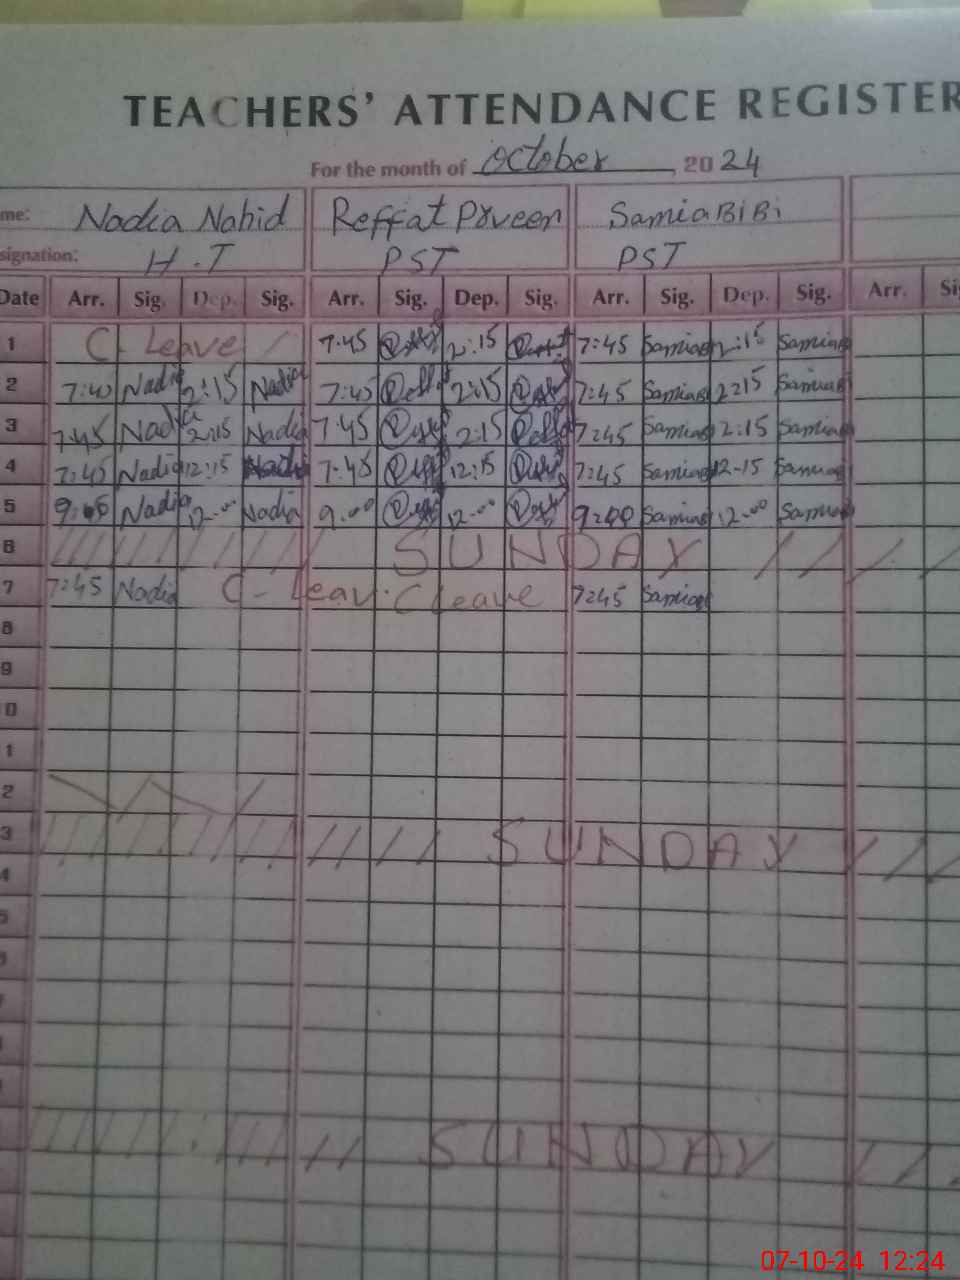 TEACHERS' ATTENDANCE REGISTER
For the month of October 2024
me: Nadia Nahid Reffat Prveen Samia BiBi
signation: H.T PST PST
Date Arr. Sig. Dep. Sig. Arr. Sig. Dep. Sig. Arr. Sig. Dep. Sig. Arr. Si
1 C- Leave 7:45 2:15 7:45 Samia 2:15 Samia
2 7:40 Nadia 2:15 Nadia 7:45 2:15 7:45 Samia 2:15 Samia
3 7:45 Nadia 2:15 Nadia 7:45 2:15 7:45 Samia 2:15 Samia
4 7:45 Nadia 12:15 Nadia 7:45 12:15 7:45 Samia 12-15 Samia
5 Nadia 12-00 Nadia 9.00 12-00 9:00 Samia 12-00 Samia
6 SUNDAY
7 7:45 Nadia C- Leav. C leave 7:45 Samia
8
9
0
1
2
3 SUNDAY
4
5
SUNDAY
07-10-24 12:24